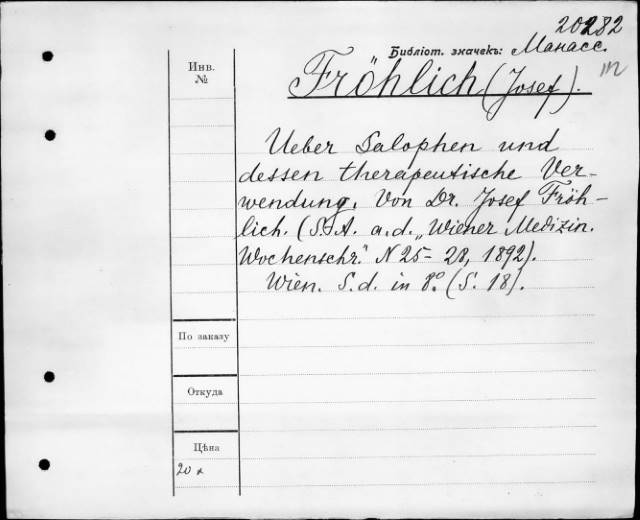 20282
Библіот. значекъ: Манасс.
Инв.
№
Fröhlich (Josef).
Ueber Salophen und
dessen therapeutische Ver-
wendung. Von Dr. Josef Fröh-
lich. (S. A. a. d. „Wiener Medizin.
Wochenschr." N 25-28, 1892).
Wien. S. d. in 8° (S. 18).
По заказу
Откуда
Цѣна
20 к